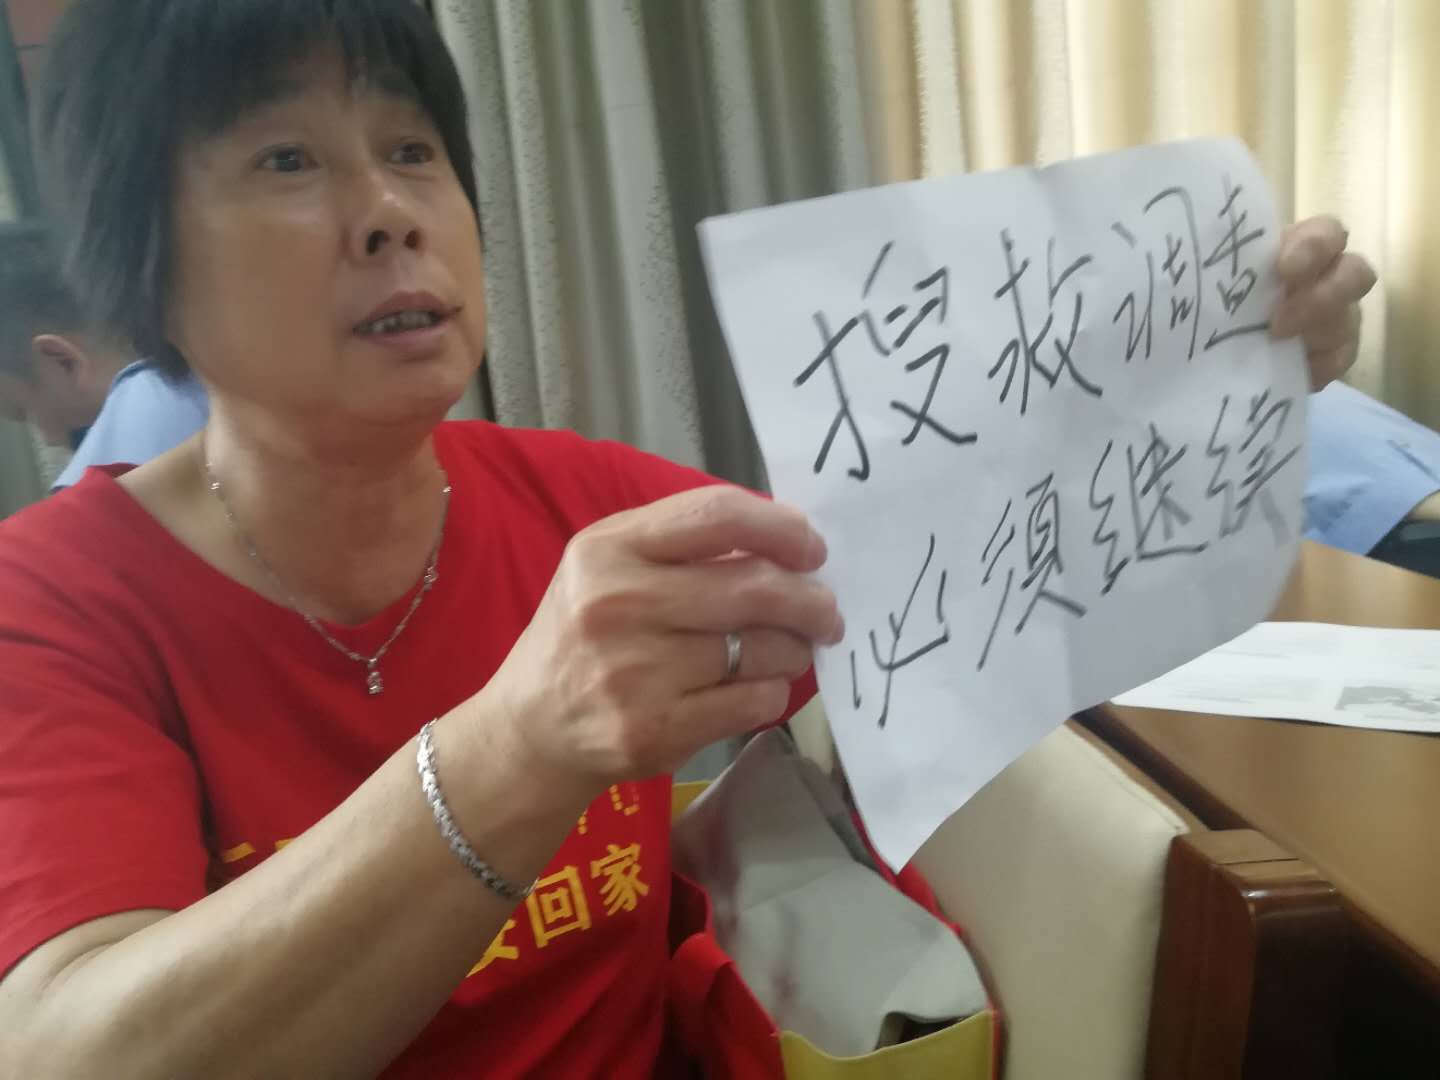 搜救调查
必须继续
安回家